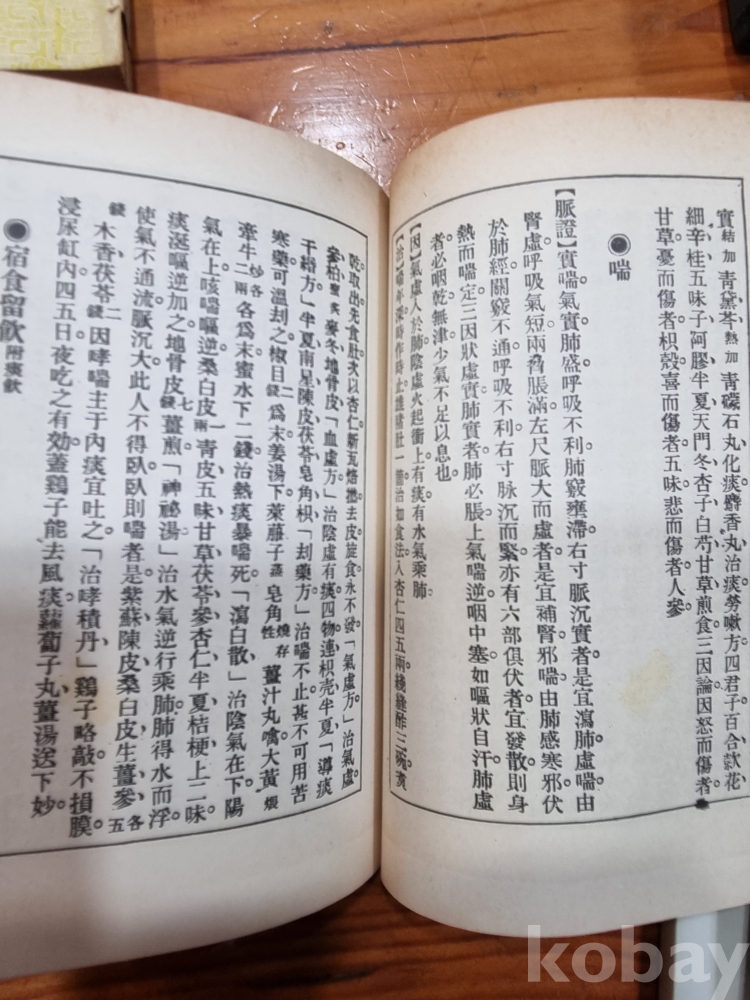 實結加青黛芩熱加青礞石丸化痰麝香丸治痰勞嗽方四君子百合款花
細辛桂五味子阿膠半夏天門冬杏子白芍甘草煎食三因論因怒而傷者
甘草憂而傷者枳殼喜而傷者五味悲而傷者人參
◉喘
【脈證】實喘氣實肺盛呼吸不利肺竅壅滯右寸脈沉實者是宜瀉肺虛喘由
腎虛呼吸氣短兩脅脹滿左尺脈大而虛者是宜補腎邪喘由肺感寒邪伏
於肺經關竅不通呼吸不利右寸脉沉而緊亦有六部俱伏者宜發散則身
熱而喘定三因狀虛實肺實者肺必脹上氣喘逆咽中塞如嘔狀自汗肺虛
者必咽乾無津少氣不足以息也
【因】氣虛人於肺陰虛火起衝上有痰有水氣乘肺
【治】喘年深時作時止豬肚一箇治如食法入杏仁四五兩綫縫醋三碗煮
乾取出先食肚次以杏仁新瓦焙撚去皮旋食永不發「氣虛方」治氣虛
參柏麥冬地骨皮「血虛方」治陰虛有痰四物連枳壳半夏「導痰
千緡方」半夏南星陳皮茯苓皂角枳「刦藥方」治喘不止甚不可用苦
寒藥可溫刦之椒目二錢爲末姜湯下萊菔子蒸皂角燒存性薑汁丸噙大黃煨
牽牛炒各二兩各爲末蜜水下二錢治熱痰暴喘死「瀉白散」治陰氣在下陽
氣在上咳喘嘔逆桑白皮一兩青皮五味甘草茯苓參杏仁半夏桔梗上二味
痰涎嘔逆加之地骨皮七錢薑煎「神祕湯」治水氣逆行乘肺肺得水而浮
使氣不通流脈沉大此人不得臥臥則喘者是紫蘇陳皮桑白皮生薑參各五
錢木香茯苓二錢因哮喘主于內痰宜吐之「治哮積丹」鷄子略敲不損膜
浸尿缸內四五日夜吃之有効蓋鷄子能去風痰蘿蔔子丸薑湯送下妙
◉宿食留飲附痰飲
kobay